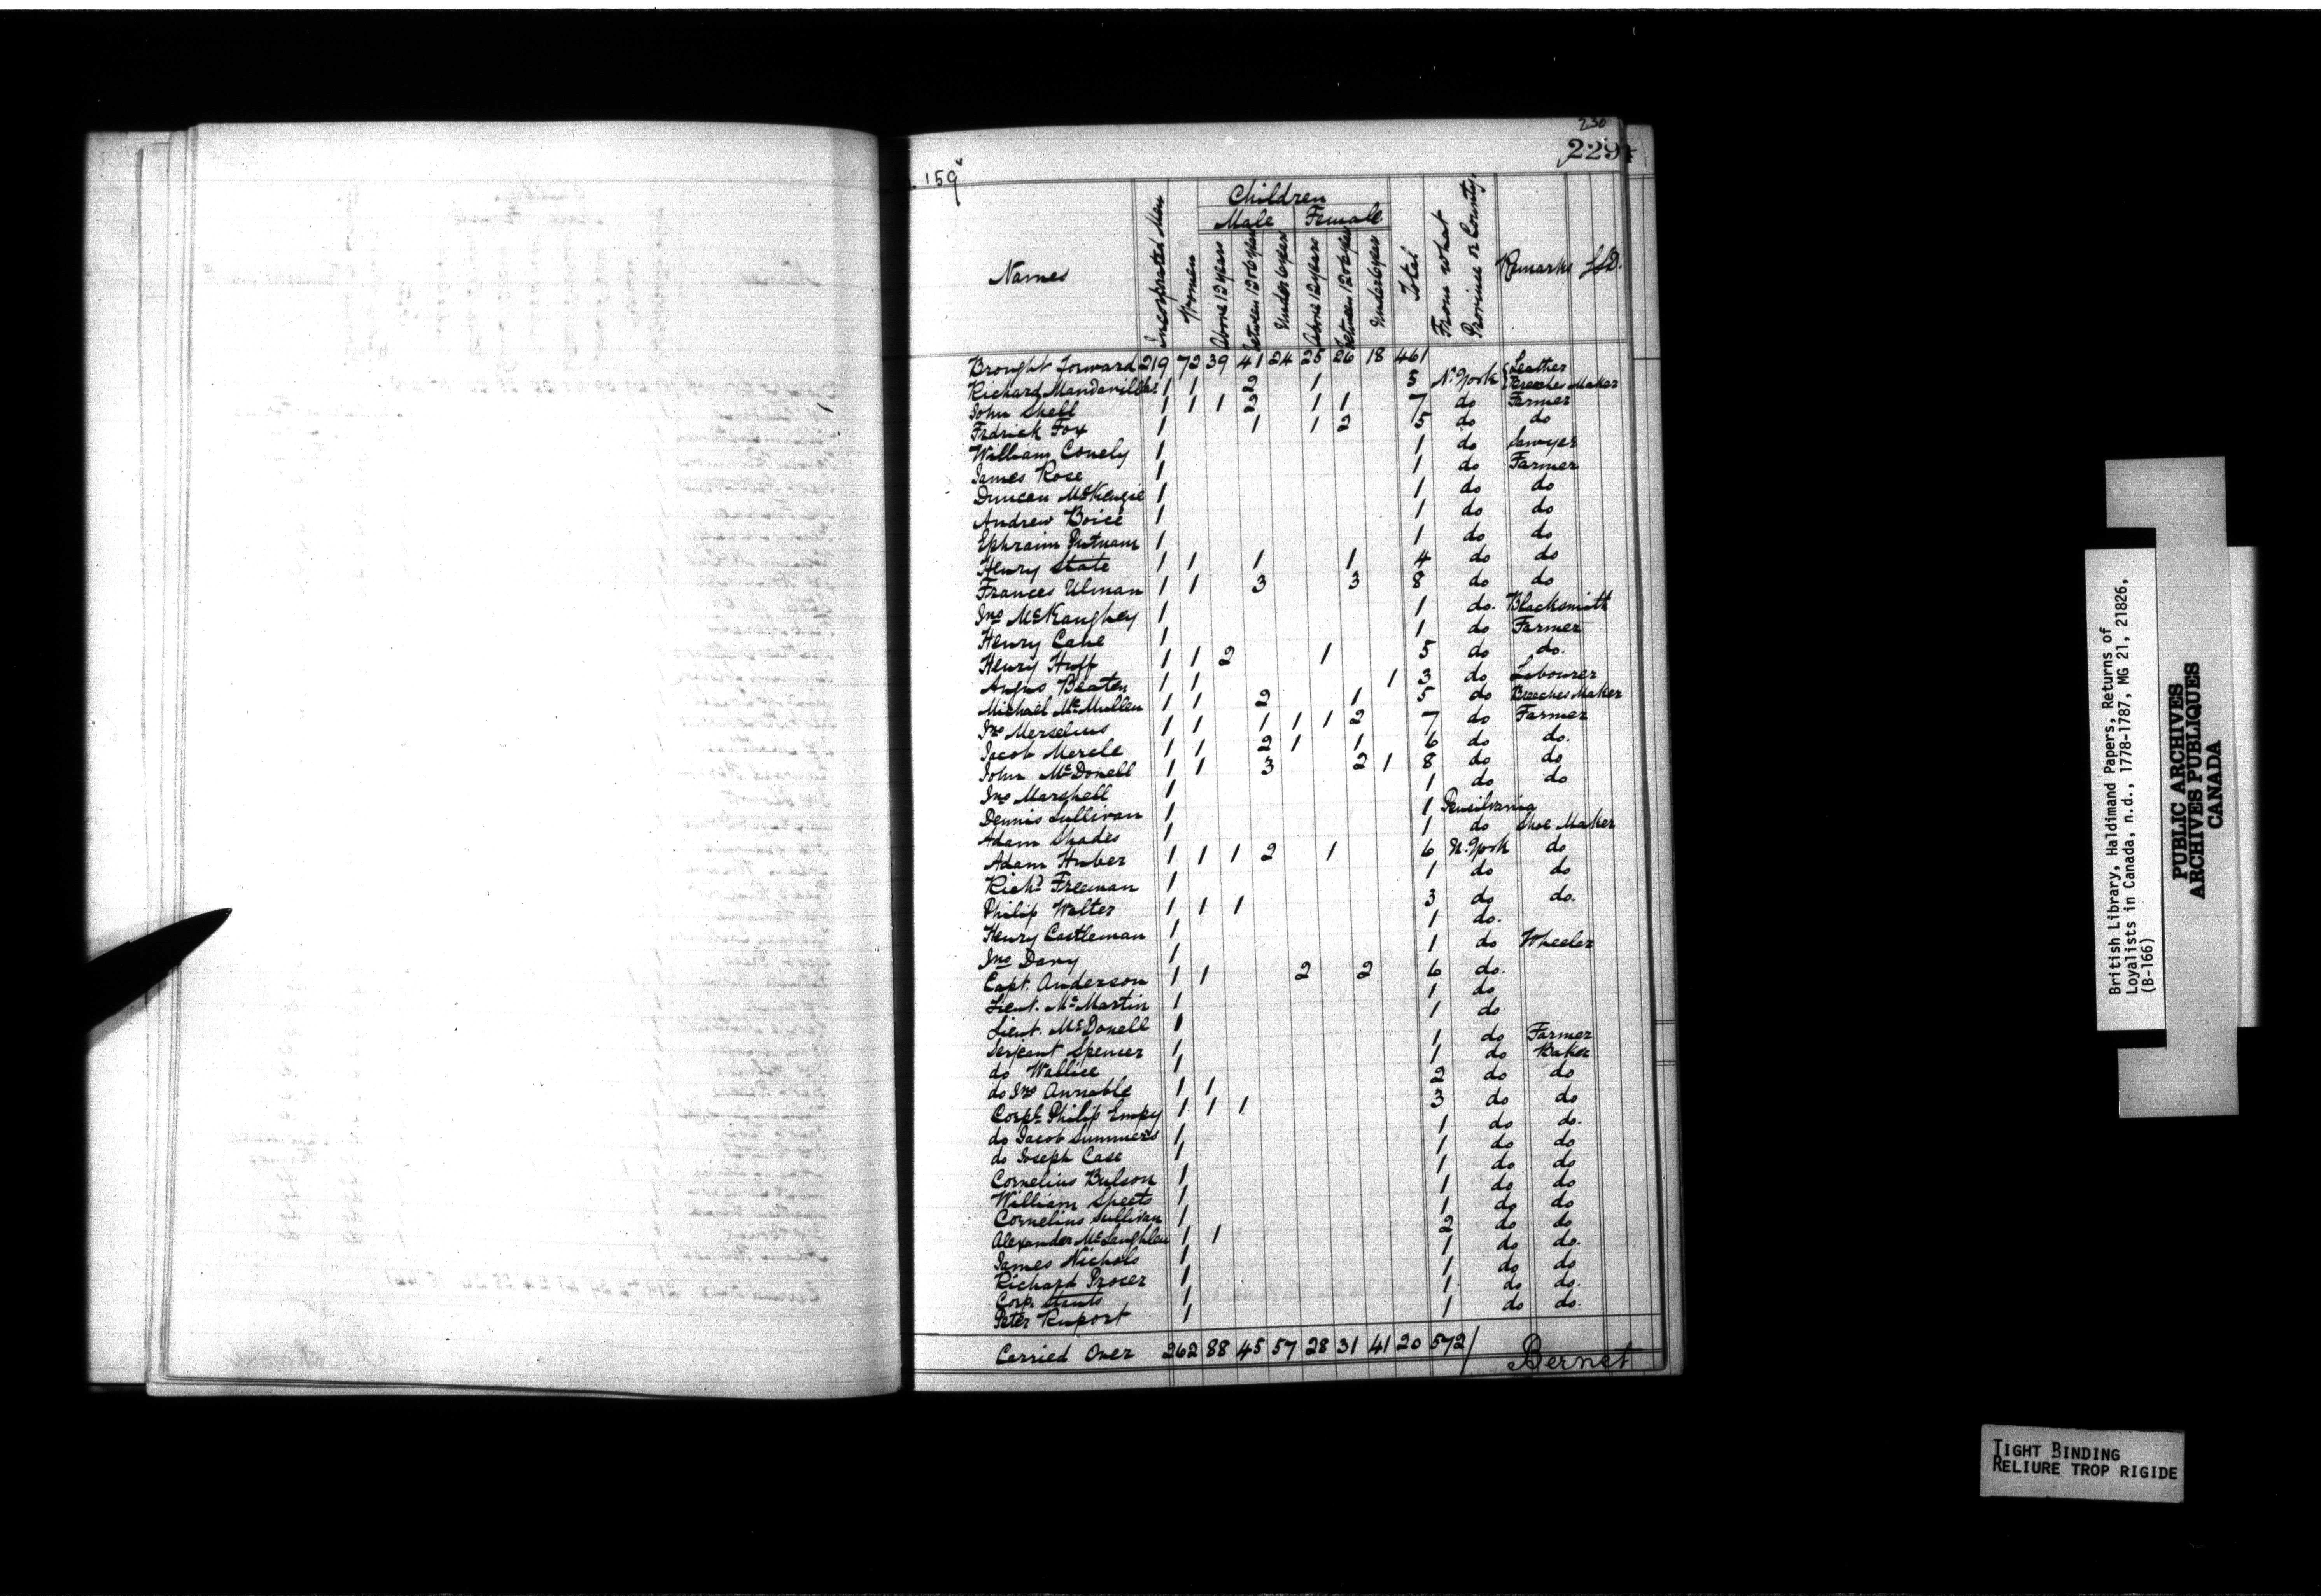 230
229
159
Children
Male Female
Names Incorporated Men Women Above 12 years Between 12 & 6 years Under 6 years Above 12 years Between 12 & 6 years Under 6 years Total From what Province or County. Remarks £SD.
Brought Forward 219 72 39 41 24 25 26 18 461
Richard Mandaville 1 1 2 1 5 N. York Leather Breeches Maker
John Shell 1 1 1 2 1 1 7 do Farmer
Fedrick Fox 1 1 1 2 5 do do
William Conely 1 1 do Sawyer
James Rose 1 1 do Farmer
Duncan McKenzie 1 1 do do
Andrew Boice 1 1 do do
Ephraim Putnam 1 1 do do
Henry State 1 1 1 1 4 do do
Frances Ulman 1 1 3 3 8 do do
Jno McKaughey 1 1 do. Blacksmith
Henry Cane 1 1 do Farmer
Henry Huff 1 1 2 1 5 do do.
Angus Beaten 1 1 1 3 do Labourer
Michael McMullen 1 1 2 1 5 do Breeches Maker
Jno Merselius 1 1 1 1 1 2 7 do Farmer
Jacob Mercle 1 1 2 1 1 6 do do.
John McDonell 1 1 3 2 1 8 do do
Jno Marshell 1 1 do do
Dennis Sullivan 1 1 Pensilvania
Adam Shades 1 1 do Shoe Maker
Adam Huber 1 1 1 2 1 6 N. York do
Richd Freeman 1 1 do do
Philip Walter 1 1 1 3 do do.
Henry Castleman 1 1 do.
Jno Davy 1 1 do Wheeler
Capt. Anderson 1 1 2 2 6 do.
Lieut. McMartin 1 1 do
Lieut. McDonell 1 1 do
Serjeant Spencer 1 1 do Farmer
do Wallice 1 1 do Baker
do Jno Annable 1 1 2 do do
Corpl Philip Empy 1 1 1 3 do do
do Jacob Summers 1 1 do do.
do Joseph Case 1 1 do do
Cornelius Bulson 1 1 do do
William Speets 1 1 do do
Cornelius Sullivan 1 1 do do
Alexander McLaughlen 1 1 2 do do
James Nichols 1 1 do do.
Richard Procer 1 1 do do
Corp. Stants 1 1 do do.
Peter Ruport 1 1 do do.
Carried Over 262 88 45 57 28 31 41 20 572
Bernet
British Library, Haldimand Papers, Returns of
Loyalists in Canada, n.d., 1778-1787, MG 21, 21826,
(B-166)
PUBLIC ARCHIVES
ARCHIVES PUBLIQUES
CANADA
TIGHT BINDING
RELIURE TROP RIGIDE